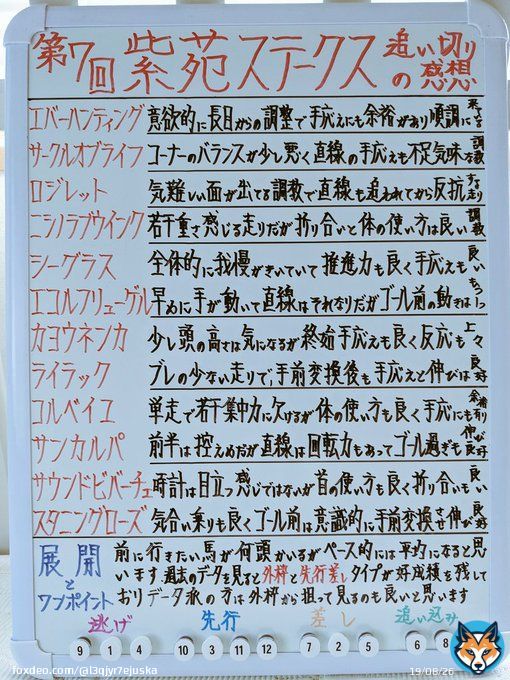 第7回 紫苑ステークス 追い切りの感想
エバーハンティング 意欲的に長目からの調整で手応えにも余裕があり順調に来てる
サークルオブライフ コーナーのバランスが少し悪く直線の手応えも不足気味な調教
ロジレット 気難しい面が出てる調教で直線も追われてから反抗する走り
ニシノラブウインク 若干重さ感じる走りだが折り合いと体の使い方は良い調教
シーグラス 全体的に我慢がきいていて推進力も良く手応えも良い
エコルフリューゲル 早めに手が動いて直線はそれなりだがゴール前の動きはもう一つ
カヨウネンカ 少し頭の高さは気になるが終始手応えも良く反応も上々
ライラック ブレの少ない走りで、手前変換後も手応えと伸びは良好
コルベイユ 単走で若干集中力に欠けるが体の使い方も良く手応にも余裕有り
サンカルパ 前半は控えめだが直線は回転力もあってゴール過ぎも伸び良好
サウンドビバーチェ 時計は目立つ感じではないが首の使い方も良く折り合いも良い
スタニングローズ 気合い乗りも良くゴール前は意識的に手前変換させ伸び良好
展開とワンポイント
前に行きたい馬が何頭かいるがペース的には平均になると思
います 過去のデータを見ると外枠と先行差しタイプが好成績を残して
おりデータ派の方は外枠から狙って見るのも良いと思います
逃げ 先行 差し 追い込み
9 1 4 10 3 11 12 7 2 5 6 8
foxdeo.com/@l3qjyr7ejuska
19/08/26